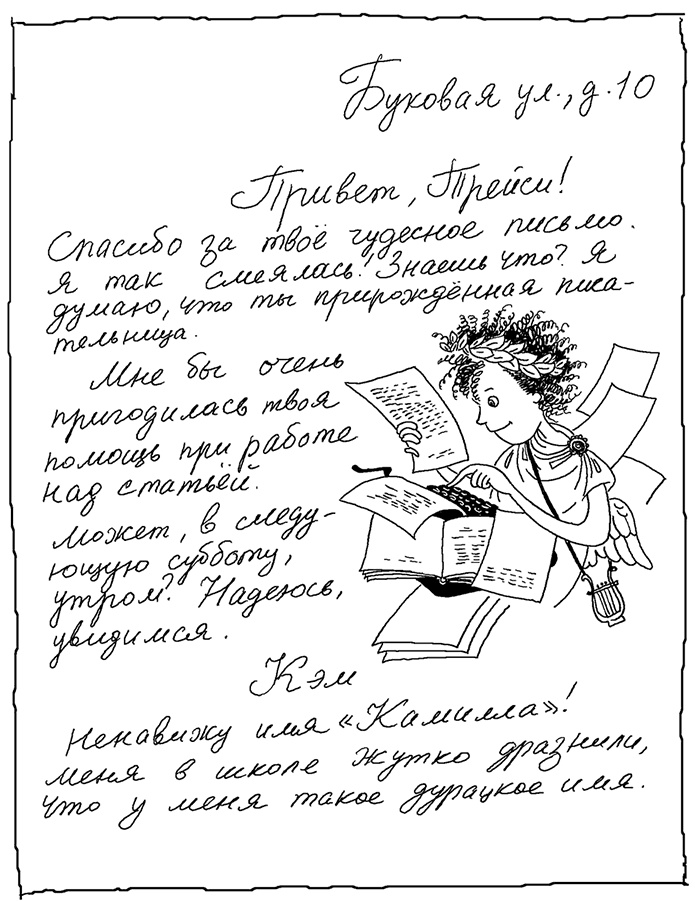 Буковая ул., д. 10
Привет, Трейси!
Спасибо за твоё чудесное письмо.
Я так смеялась! Знаешь что? Я
думаю, что ты прирождённая писа-
тельница.
Мне бы очень
пригодилась твоя
помощь при работе
над статьёй.
Может, в следу-
ющую субботу,
утром? Надеюсь,
увидимся.
Кэм
Ненавижу имя «Камилла»!
Меня в школе жутко дразнили,
что у меня такое дурацкое имя.